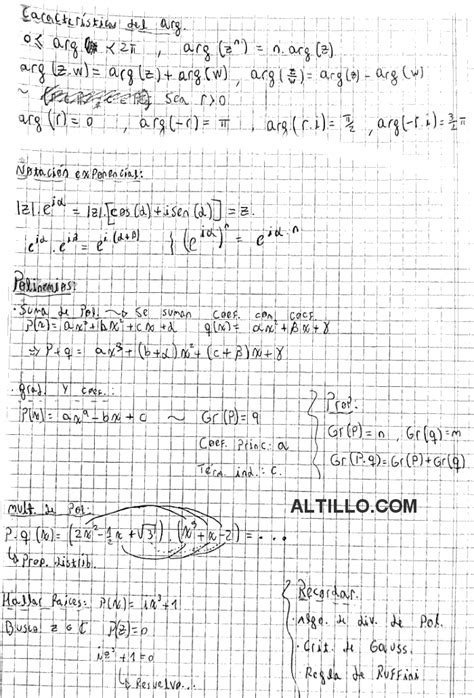 Característica del arg.
0 ≤ arg < 2π , arg (zⁿ) = n. arg (z)
arg (z.w) = arg (z) + arg (w) , arg (z/w) = arg(z) - arg (w)
~ Sea r>0
arg (r) = 0 , arg(-r) = π , arg (r.i) = π/2 , arg(-r.i) = 3/2 π
Notación exponencial:
|z|.e^{iα} = |z|.[cos (α) + i sen (α)] = z.
e^{iα} . e^{iβ} = e^{i.(α+β)} } (e^{iα})ⁿ = e^{iα.n}
Polinomios:
· Suma de Pol. ~> Se suman coef. con coef.
P(x) = ax³ + bx² + cx + d q(x) = αx² + βx + γ
=> P+q = ax³ + (b+α)x² + (c+β)x + γ
· grad. y coef.:
P(x) = ax⁹ - bx + c ~ Gr(P) = 9
Coef. princ: a
Térm. ind.: c.
Prop.
Gr(P) = n , Gr(q) = m
Gr(P.q) = Gr(P) + Gr(q)
ALTILLO.COM
mult. de Pol.
P.q (x) = (2x² - 1/2 x + √3) . (x³ + x - 2) = ...
↳ Prop. distrib.
Hallar Raíces: P(x) = ix³+1
Busco z ∈ ℂ P(z) = 0
iz³ + 1 = 0
↳ Resuelvo...
Recordar.
· Algo. de div. de Pol.
· Crit. de Gauss.
Regla de Ruffini